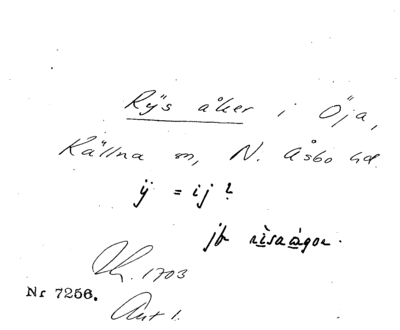 Rÿs åker i Öja,
Källna sn, N. Åsbo hd
ÿ = ij?
jfr risaågor.
Lk. 1703
Nr 7256.
Akt 1.